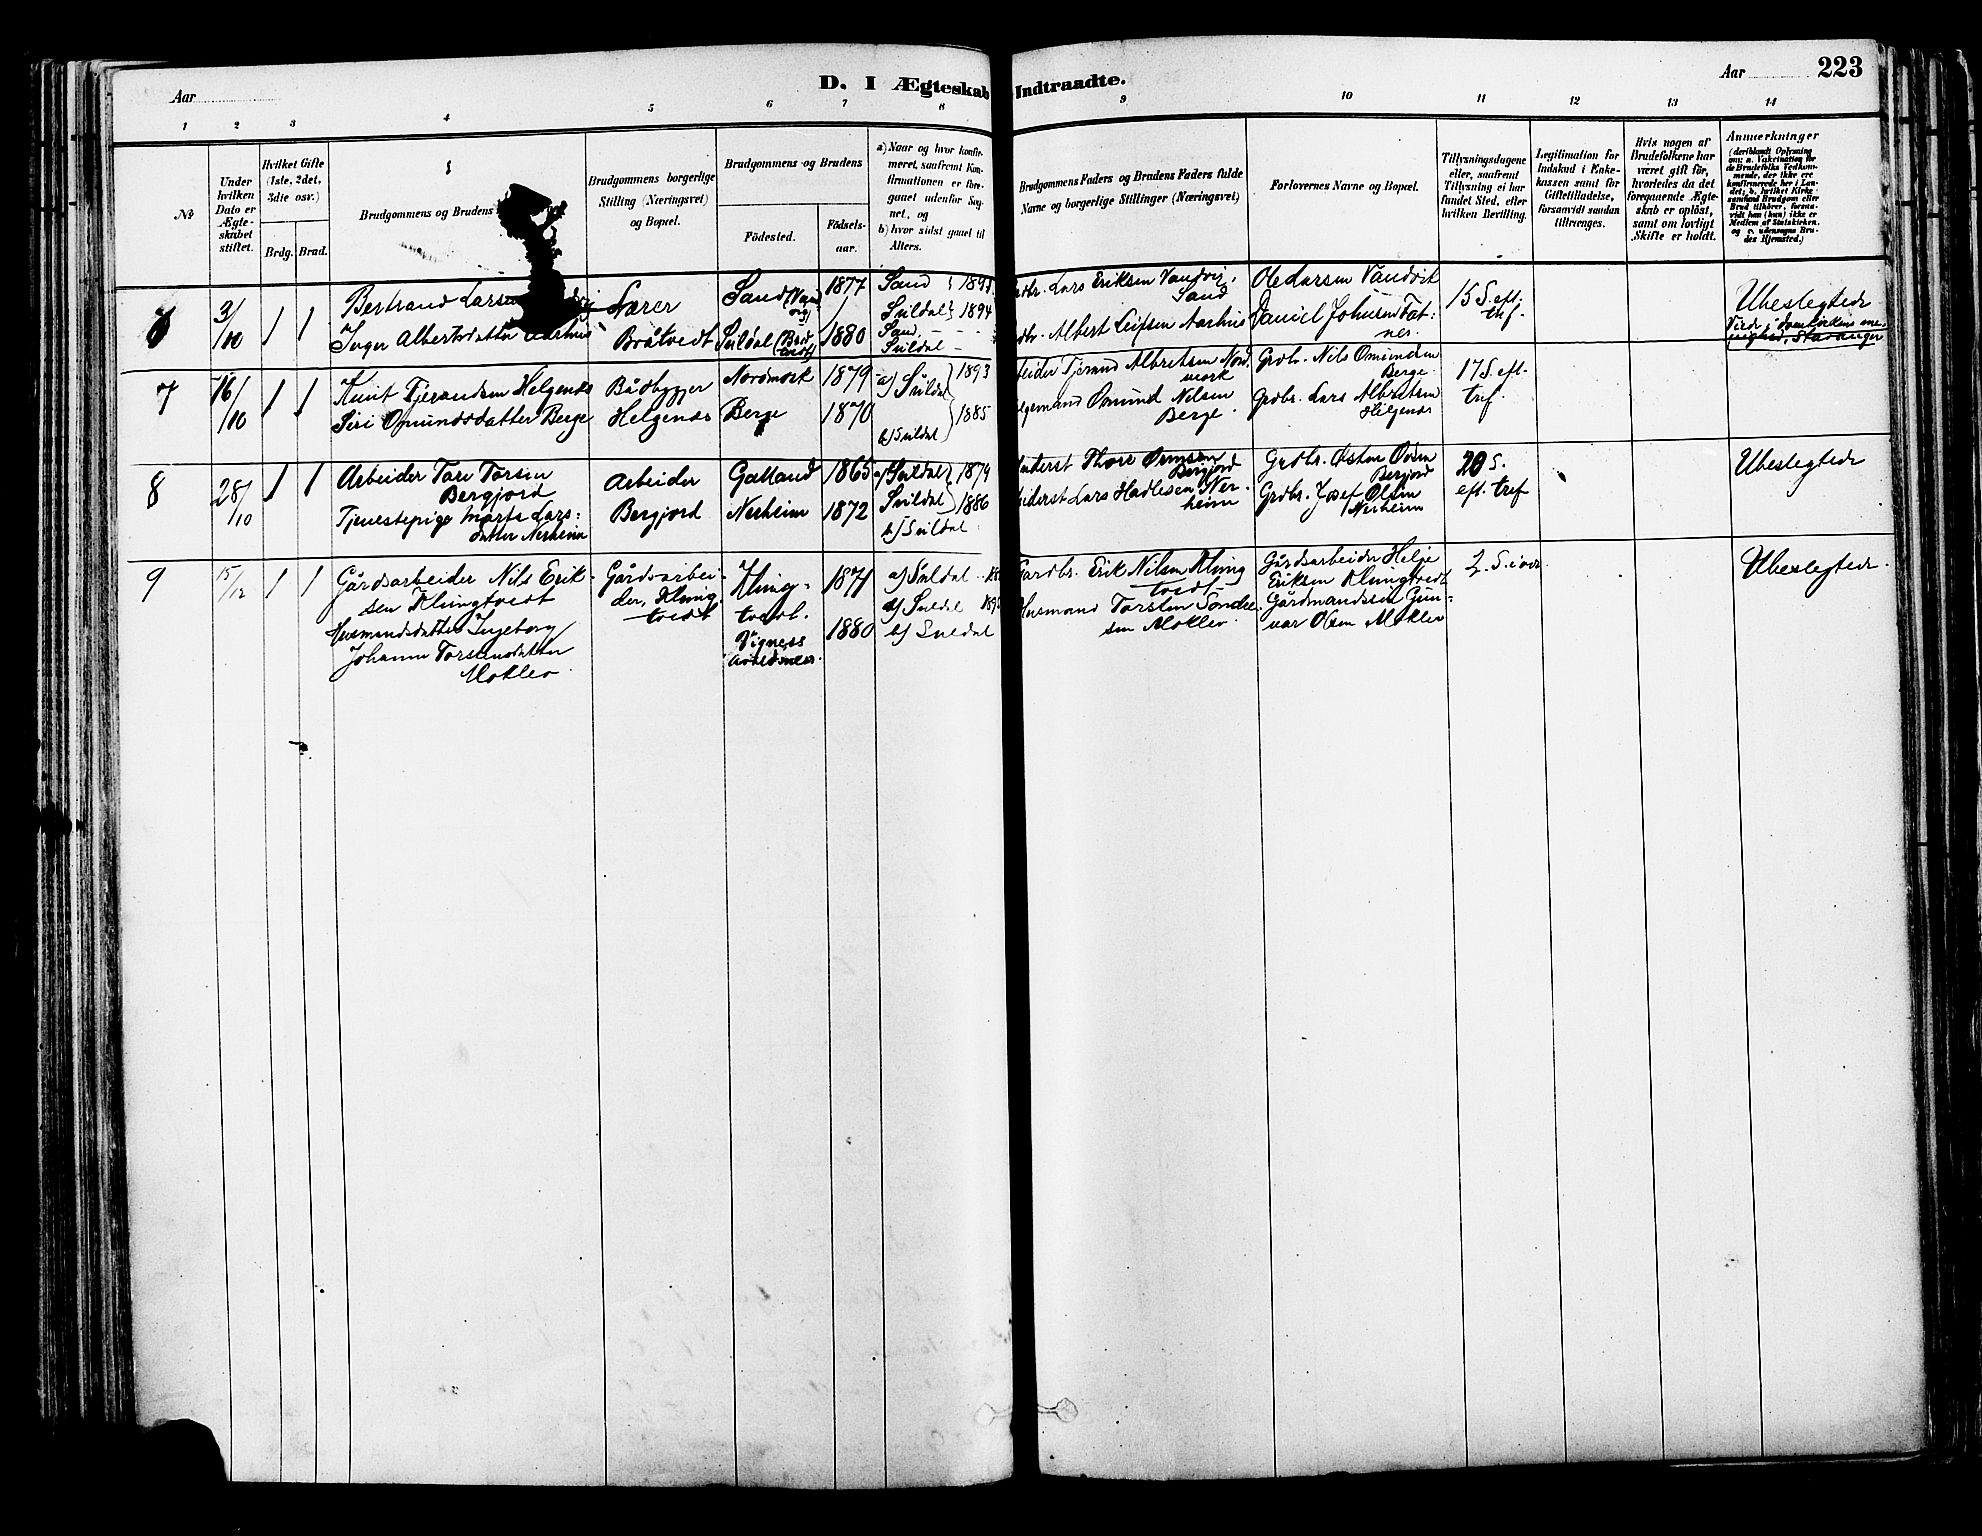 D. I Ægteskab Indtraadte.
Aar
Aar 223
1 2 3 4 5 6 7 8 9 10 11 12 13 14
№
Under hvilken Dato er Ægteskabet stiftet.
Hvilket Gifte (1ste, 2det, 3die osv.)
Brdg. Brud.
Brudgommens og Brudens
Brudgommens borgerlige Stilling (Næringsvei) og Bopæl.
Brudgommens og Brudens
Födested.
Födselsaar.
a) Naar og hvor konfirmeret, saafremt Konfirmationen er foregaaet udenfor Sognet, og
b) hvor sidst gaaet til Alters.
Brudgommens Faders og Brudens Faders fulde Navne og borgerlige Stillinger (Næringsvei)
Forlovernes Navne og Bopæl.
Tillysningsdagene eller, saafremt Tillysning ei har fundet Sted, efter hvilken Bevilling.
Legitimation for Indskud i Enkekassen samt for Giftetilladelse, forsaavidt saadan tiltrænges.
Hvis nogen af Brudefolkene har været gift før, hvorledes da det foregaaende Ægteskab er opløst, samt om lovligt Skifte er holdt.
Anmerkninger
(deriblandt Oplysning om: a. Vakcination for de Brudefolks Vedkommende, der ikke ere konfirmerede her i Landet; b. hvilket Kirkesamfund Brudgom eller Brud tilhörer, forsaavidt han (hun) ikke er Medlem af Statskirken, og c. udensogns Brudes Hjemsted.)
6 3/10 1 1
Bertrand Larsen
Inger Albertsdatter Aarhus
Lærer
Bråtvedt
Sand (Vandvig)
Suldal (Bratvedt)
1877
1880
Sand
Suldal 1894
Sand
Suldal
Grdbr. Lars Eriksen Vandvig, Sand
Gdbr. Albert Leifsen Aarhus
Ole Larsen Vandvik
Daniel Johnsen Fatnes
15 S. eft. tref.
Ubeslegtede
Viede i Svankirkens menighed, Stavanger
7 16/10 1 1
Knut Tjerandsen Helgenes
Siri Omundsdatter Berge
Bådbygger
Helgenes
Nordmork
Berge
1879
1870
a) Suldal 1893
1885
b) Suldal
Arbeider Tjerand Albretsen Nordmork
Omund Nilsen Berge.
Grdbr. Nils Omunden Berge
Grdbr. Lars Albretsen Helgenes
17 S. eft. tref.
8 28/10 1 1
Arbeider Tore Torsen
Bergjord
Tjenestepige Marta Lars-
datter Nerheim
Arbeider
Bergjord
Galtland
Nerheim
1865
1872
a) Suldal 1879
Suldal 1886
b) Suldal
Inderst Thore Ormsen Bergjord
Inderst Lars Hadlesen Nerheim
Grdbr. Østen Odsen Bergjord
Grdbr. Josef Olsen Nerheim
20 S. eft. tref
Ubeslegtede
9 15/12 1 1
Gårdsarbeider Nils Erik-
sen Klungtvedt
Husmandsdatter Ingeborg
Johanne Torstensdatter
Moklev
Gårdsarbei-
der, Klung-
tvedt
Klung-
tvedt.
Vigness
1871
1880
a) Suldal
a) Suldal
b) Suldal
Gardbr. Erik Nilsen Klungtvedt
Husmand Torsten Sondresen Moklev.
Gårdsarbeider Helje
Eriksen Klungtvedt
Gårdmandssøn Gun-
var Olsen Moklev
2. S. i adv
Ubeslegtede.